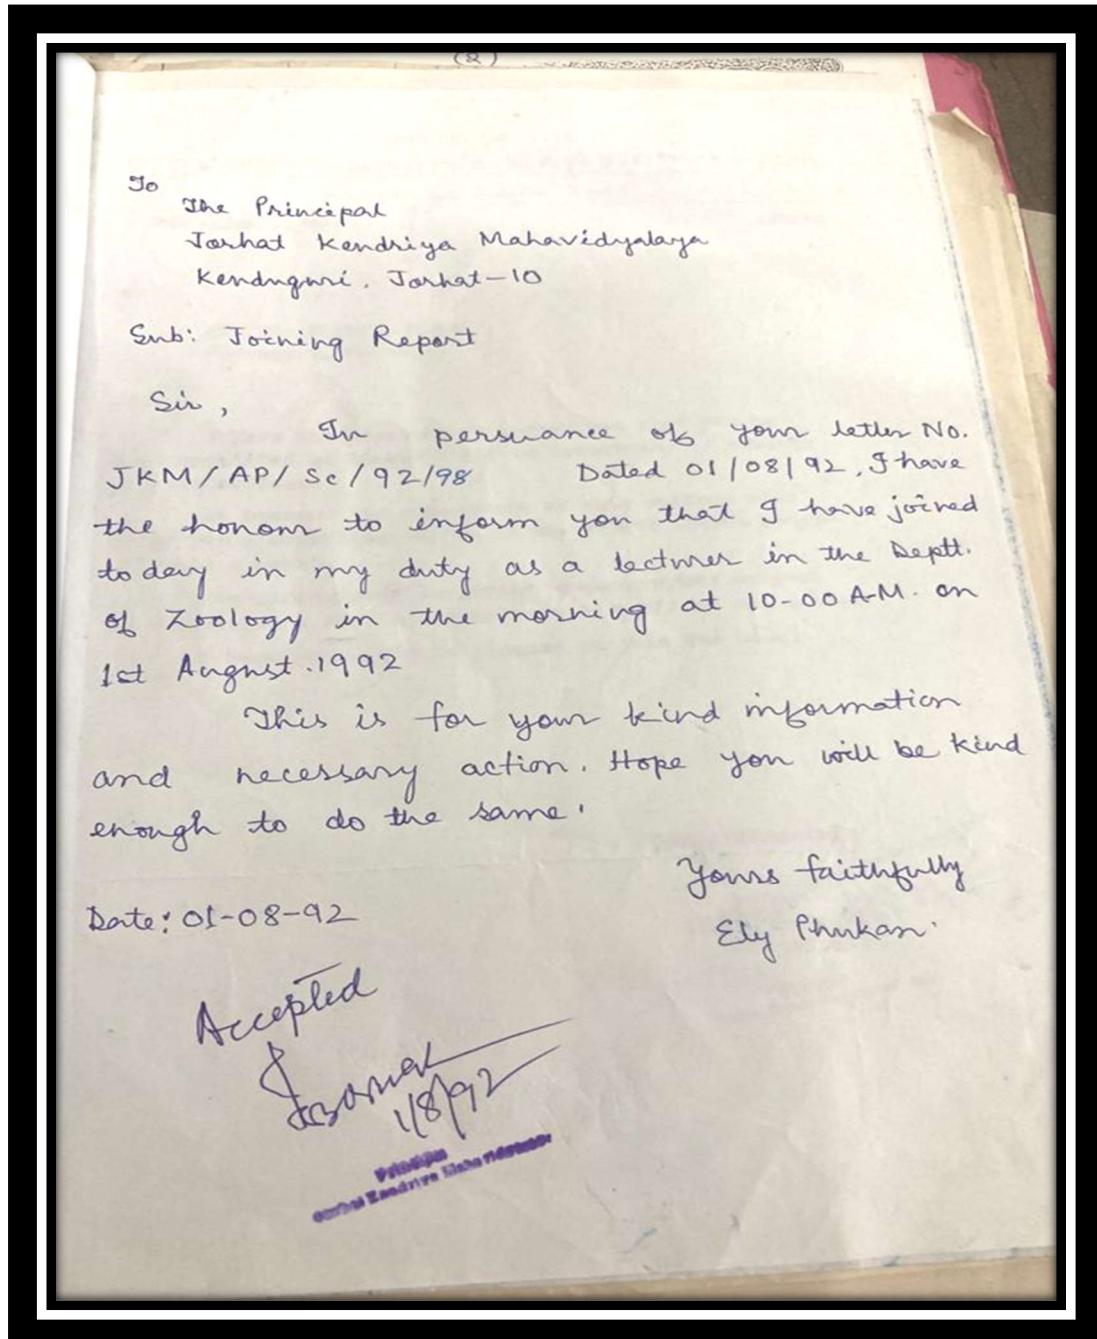 (2)
To
The Principal
Jorhat Kendriya Mahavidyalaya
Kenduguri, Jorhat-10
Sub: Joining Report
Sir,
In persuance of your letter No.
JKM/AP/Sc/92/98 Dated 01/08/92, I have
the honour to inform you that I have joined
today in my duty as a lecturer in the Deptt.
of Zoology in the morning at 10-00 A.M. on
1st August.1992
This is for your kind information
and necessary action. Hope you will be kind
enough to do the same.
Yours faithfully
Date: 01-08-92
Ely Phukan.
Accepted
1/8/92
Principal
Jorhat Kendriya Mahavidyalaya